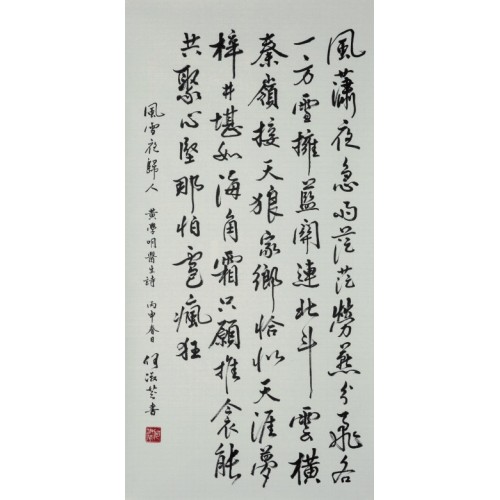 風瀟夜急雨茫茫勞燕分飛各
一方雪擁藍關連北斗雲橫
秦嶺接天狼家鄉恰似天涯夢
梓井堪如海角霜只願推衾能
共聚心堅那怕雹瘋狂
風雪夜歸人 黃學明醫生詩 丙申春日 淑書